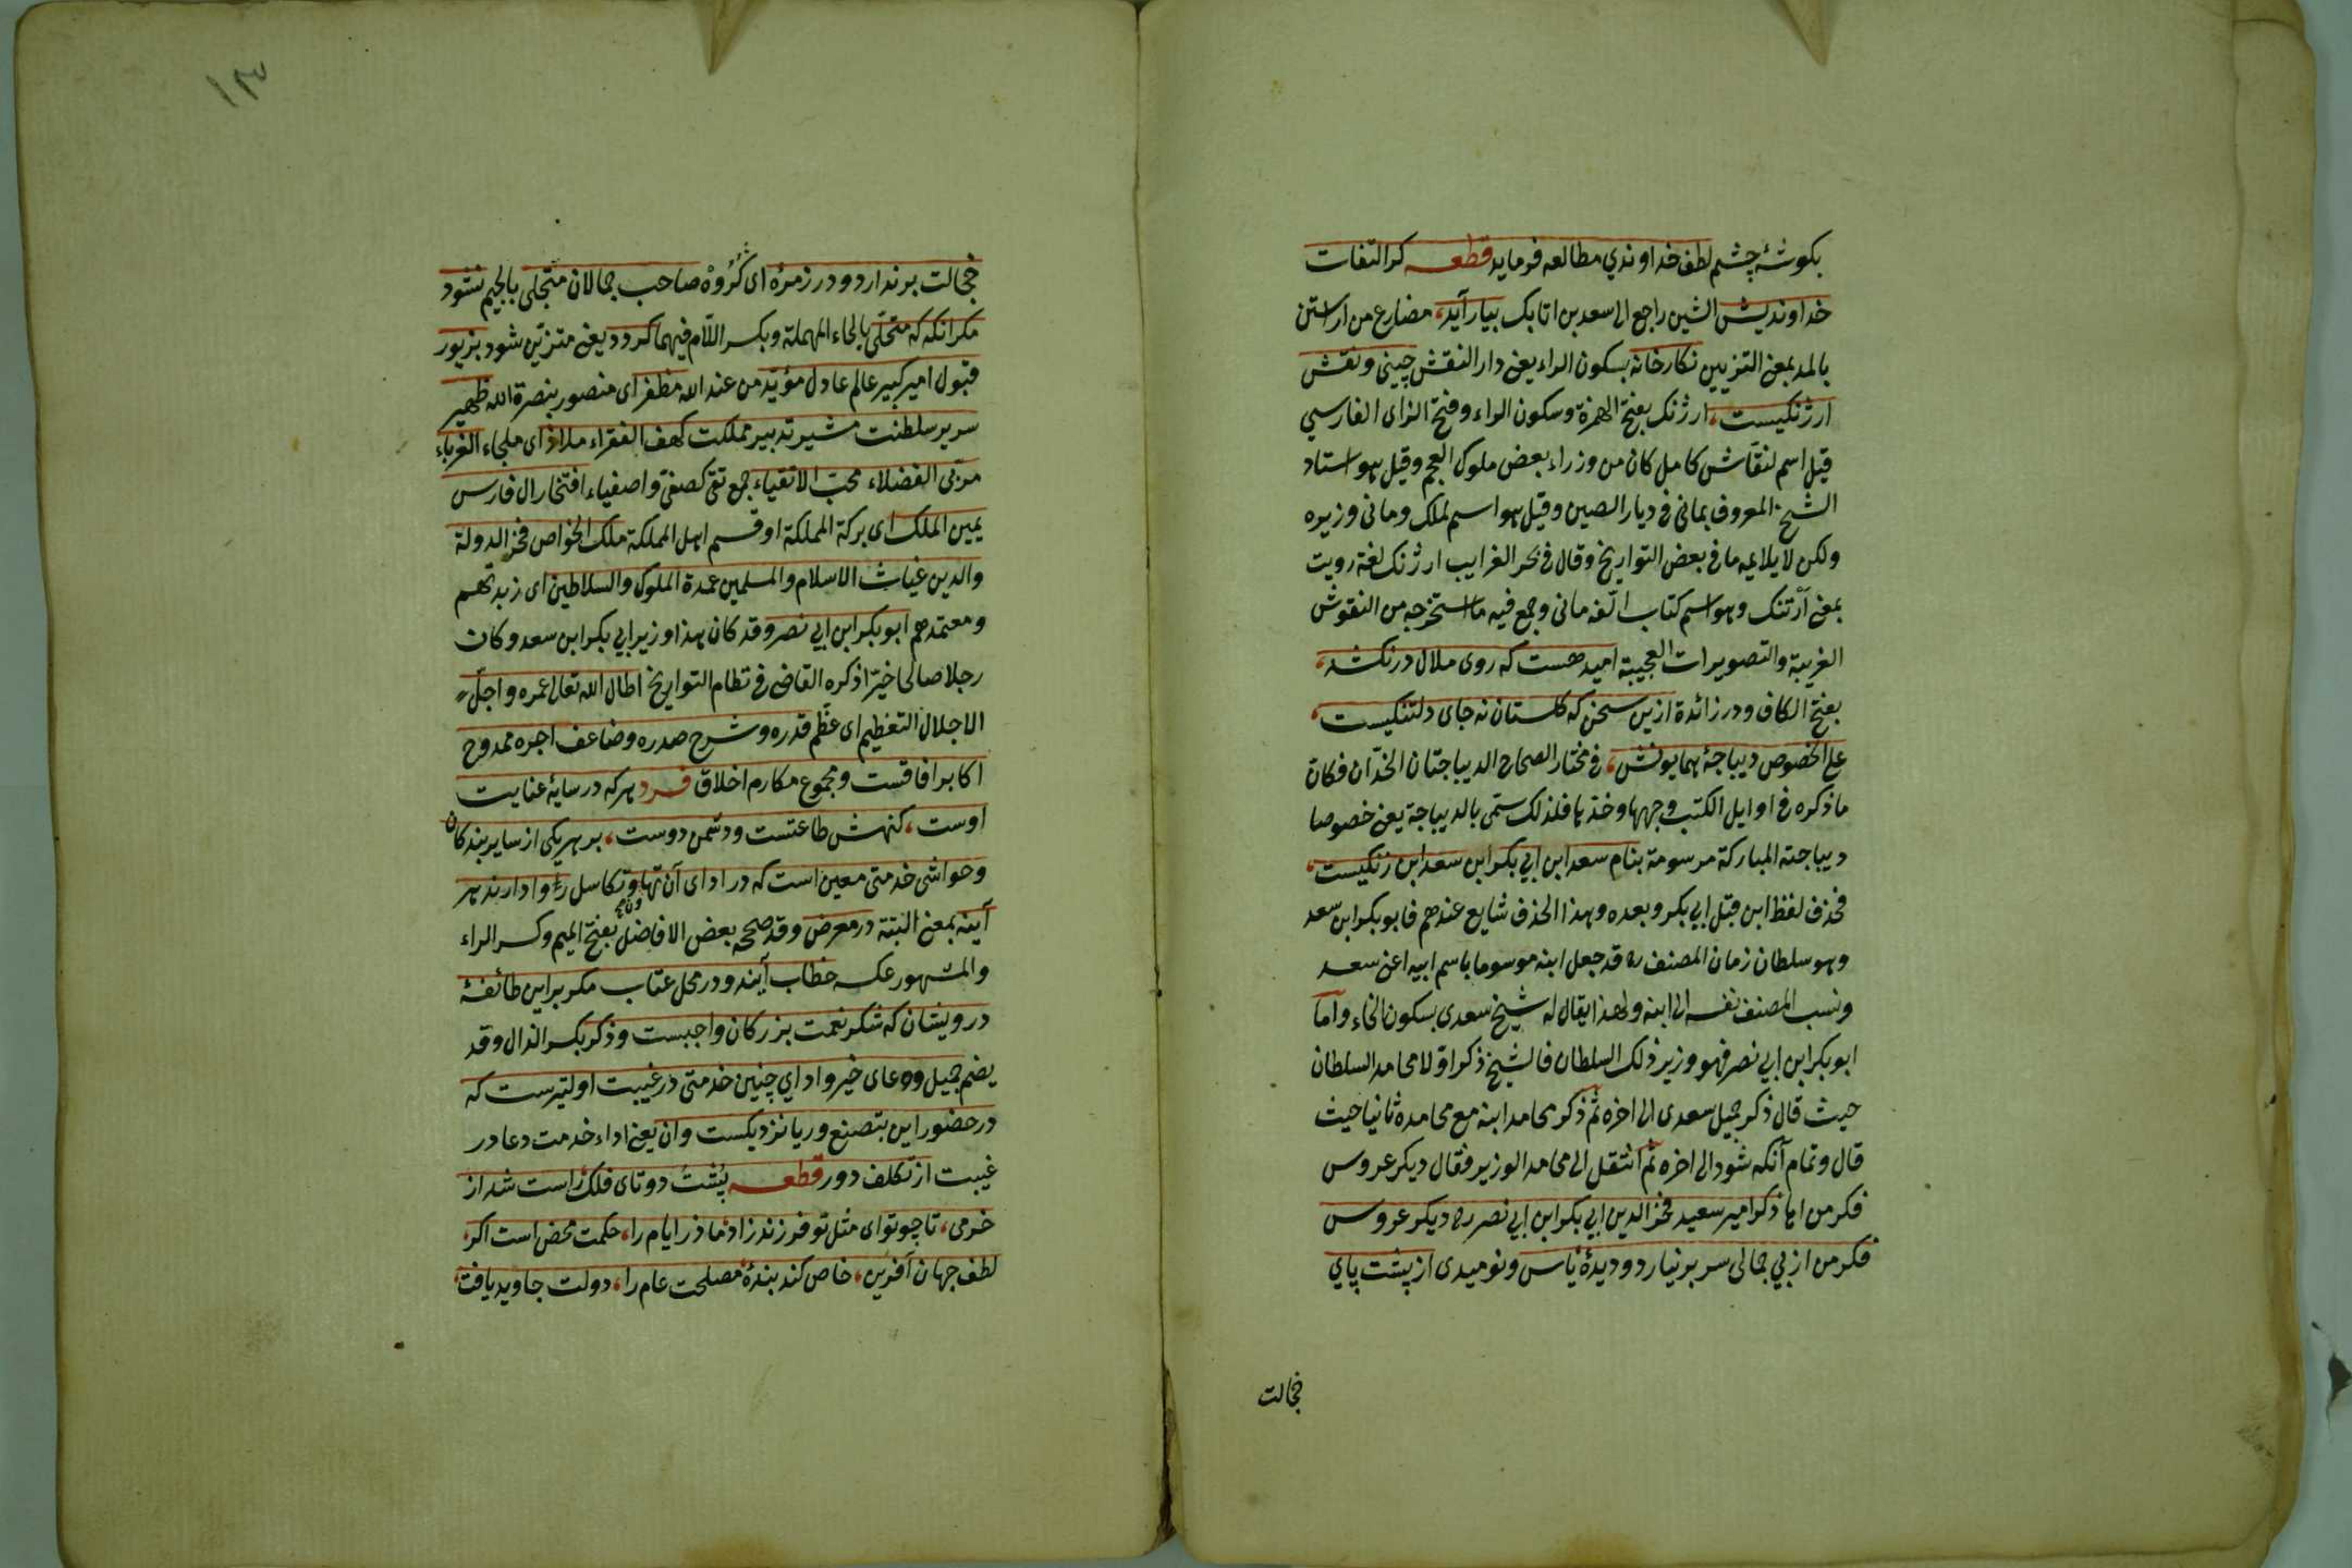 بكوشۀ چشم لطف خداوندي مطالعه فرمايد قطعه كر التفات
خداونديش الشين راجع الى سعد بن اتابك بيارآيد، مضارع من اراستن
بالمد بمعنى التزيين نكارخانۀ بسكون الراء يعنى دار النقش چينى ونقش
ارژنكيست، ارژنك بفتح الهمزة وسكون الراء وفتح الزاى الفارسي
قيل اسم لنقّاش كامل كان من وزراء بعض ملوك العجم وقيل هو استاد
الشيخ المعروف بمانى فى ديار الصين وقيل هو اسم لملك ومانى وزيره
ولكن لا يلايمه ما فى بعض التواريخ وقال فى بحر الغرايب ارژنك لغة رويت
بمعنى ارتنك وهو اسم كتاب الّفه مانى وجمع فيه ما استخرجه من النقوش
الغريبة والتصويرات العجيبة اميد هست كه روى ملال در نكشد،
بفتح الكاف ودر زائدة ازين سخن كه كلستان نه جاى دلتنكيست،
على الخصوص ديباجۀ همايونش، فى مختار الصحاح الديباجتان الخدّان فكان
ما ذكره فى اوايل الكتب وجهها وخدّها فلذلك ستمى بالديباجة يعنى خصوصا
ديباجته المباركة مرسومة بنام سعد ابن ابي بكر ابن سعد ابن زنكيست،
فحذف لفظ ابن قبل ابي بكر وبعده وهذا الحذف شايع عندهم فابو بكر ابن سعد
وهو سلطان زمان المصنف ره قد جعل ابنه موسوما باسم ابيه اعنى سعد
ونسب المصنف نفسه الى ابنه ولهذا يقال له شيخ سعدى بسكون الخاء وامّا
ابو بكر ابن ابي نصر فهو وزير ذلك السلطان فالشيخ ذكر اوّلا محامد السلطان
حيث قال ذكر جميل سعدى الى اخره ثم ذكر محامد ابنه مع محامده ثانيا حيث
قال وتمام آنكه شود الى اخره ثم انتقل الى محامد الوزير فقال ديكر عروس
فكر من ايها ذكر امير سعيد فخر الدين ابي بكر ابن ابي نصر ره ديكر عروس
فكر من از بي جمالى سر بر نيارد وديدۀ ياس ونوميدى از پشت پاي
خجالت
١٣
خجالت بر ندارد ودر زمرۀ اى كُرُوه صاحب جمالان متجلى بالجيم نشود
مكر انكه كه متحلّى بالحاء المهملة وبكسر اللّام فيهما كردد يعنى متزيّن شود بزيور
قبول امير كبير عالم عادل مؤيّد من عند الله مظفر اى منصور بنصرة الله ظهير
سرير سلطنت مشير تدبير مملكت كهف الفقراء ملاذ اى ملجاء الغرباء
مربّى الفضلاء محبّ الاتقياء جمع تقى كصفى واصفياء افتخار ال فارس
يمين الملك اى بركة المملكة او قسم اهل المملكة ملك الخواص فخر الدولة
والدين غياث الاسلام والمسلمين عمدة الملوك والسلاطين اى زبدتهم
ومعتمدهم ابو بكر ابن ابي نصر وقد كان هذا وزير ابي بكر ابن سعد وكان
رجلا صالحا خيّرا ذكره القاضى فى نظام التواريخ اطال الله تعالى عمره واجلّ
الاجلال التعظيم اى عظّم قدره وشرح صدره وضاعف اجره ممدوح
اكابر افاقست ومجموع مكارم اخلاق فرد هر كه در سايۀ عنايت
اوست، كنهش طاعتست ودشمن دوست، بر هر يكى از ساير بندكان
وحواشى خدمتى معين است كه در اداى آن تهاون وتكاسل روا دارند هر
آينه بمعنى البتة در معرض وقد صححه بعض الافاضل بفتح الميم وكسر الراء
والمشهور عكسه خطاب آيند ودر محل عتاب مكر بر اين طائفۀ
درويشان كه شكر نعمت بزركان واجبست وذكر بكسر الذال وقد
يضم جميل ودعاى خير واداي چنين خدمتى در غيبت اوليترست كه
در حضور اين بتصنع وريا نزديكست وان يعنى اداء خدمت دعا در
غيبت از تكلف دور قطعه پُشْت دوتاى فلك راست شد از
خرمى، تا چو تو اى مثل تو فرزند زاد ما در ايام را، حكمت محض است اكر
لطف جهان آفرين، خاص كند بندۀ مصلحت عام را، دولت جاويد يافت